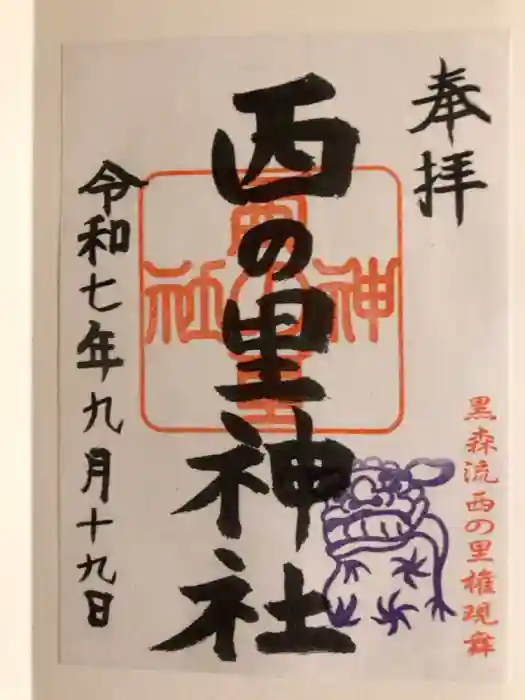 奉拝
西の里神社
西の里神社
令和七年九月十九日
黒森流西の里権現舞